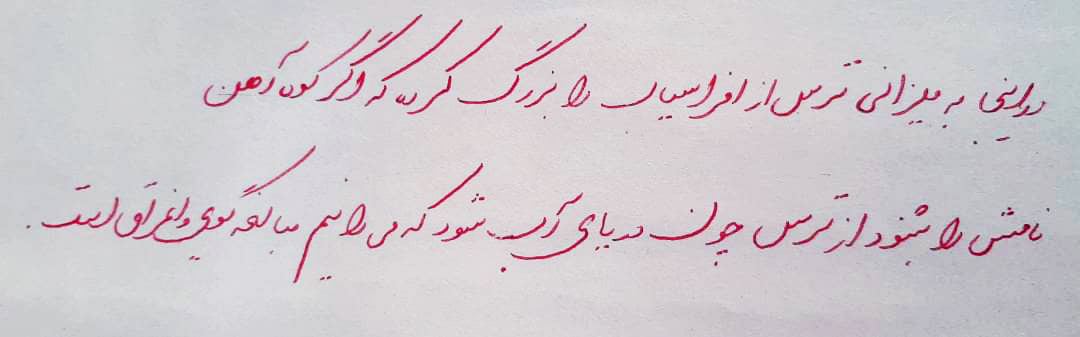 در اینجا به میزانی ترس از افراسیاب را بزرگ کرده که اگر کوه آهن
نامش را بشنود از ترس چون دریای آب شود که می دانیم مبالغه گویی و اغراق است.